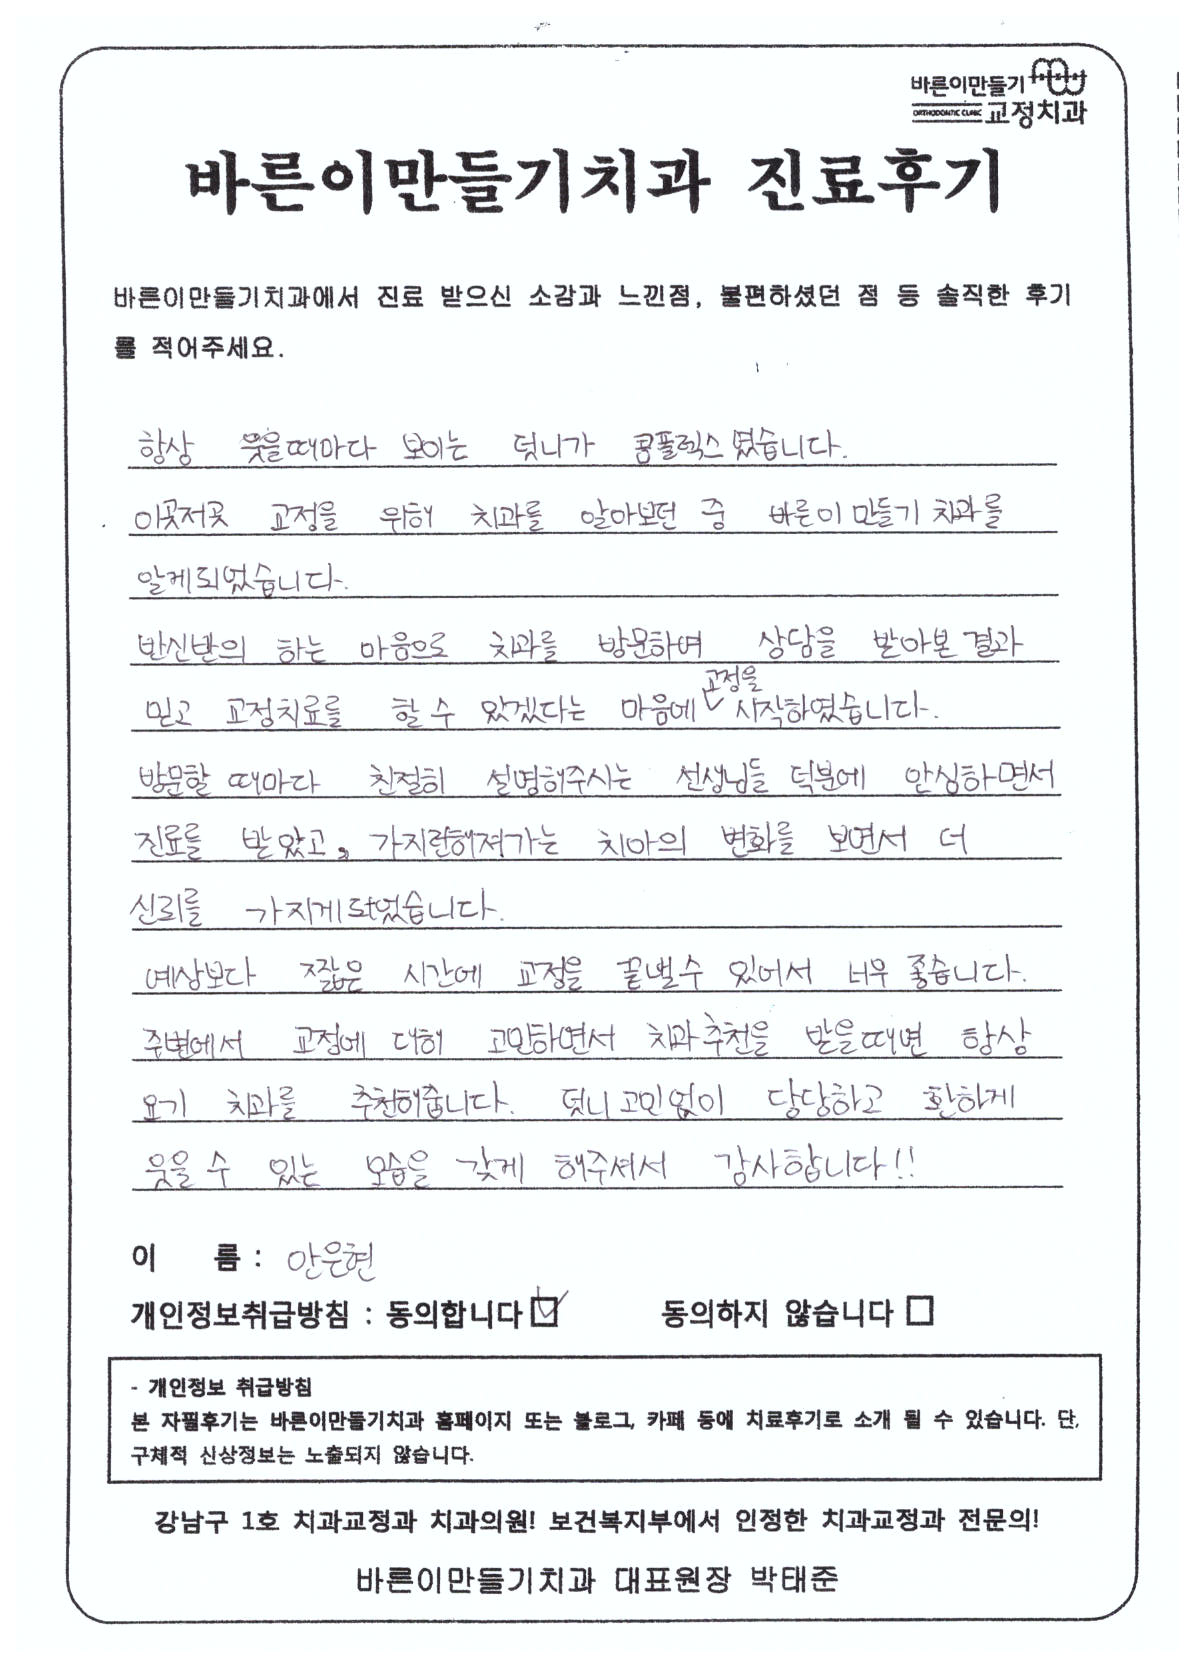 바른이만들기
ORTHODONTIC CLINIC 교정치과
바른이만들기치과 진료후기
바른이만들기치과에서 진료 받으신 소감과 느낀점, 불편하셨던 점 등 솔직한 후기
를 적어주세요.
항상 웃을때마다 보이는 덧니가 콤플렉스였습니다.
이곳저곳 교정을 위해 치과를 알아보던 중 바른이만들기 치과를
알게되었습니다.
반신반의 하는 마음으로 치과를 방문하여 상담을 받아본 결과
교정을
믿고 교정치료를 할 수 있겠다는 마음에 시작하였습니다.
방문할 때마다 친절히 설명해주시는 선생님들 덕분에 안심하면서
진료를 받았고, 가지런해져가는 치아의 변화를 보면서 더
신뢰를 가지게되었습니다.
예상보다 짧은 시간에 교정을 끝낼 수 있어서 너무 좋습니다.
주변에서 교정에 대해 고민하면서 치과추천을 받을때면 항상
요기 치과를 추천해줍니다. 덧니 고민없이 당당하고 환하게
웃을 수 있는 모습을 갖게 해주셔서 감사합니다!!
이 름 : 안은현
개인정보취급방침 : 동의합니다 동의하지 않습니다
- 개인정보 취급방침
본 자필후기는 바른이만들기치과 홈페이지 또는 블로그, 카페 등에 치료후기로 소개 될 수 있습니다. 단,
구체적 신상정보는 노출되지 않습니다.
강남구 1호 치과교정과 치과의원! 보건복지부에서 인정한 치과교정과 전문의!
바른이만들기치과 대표원장 박태준